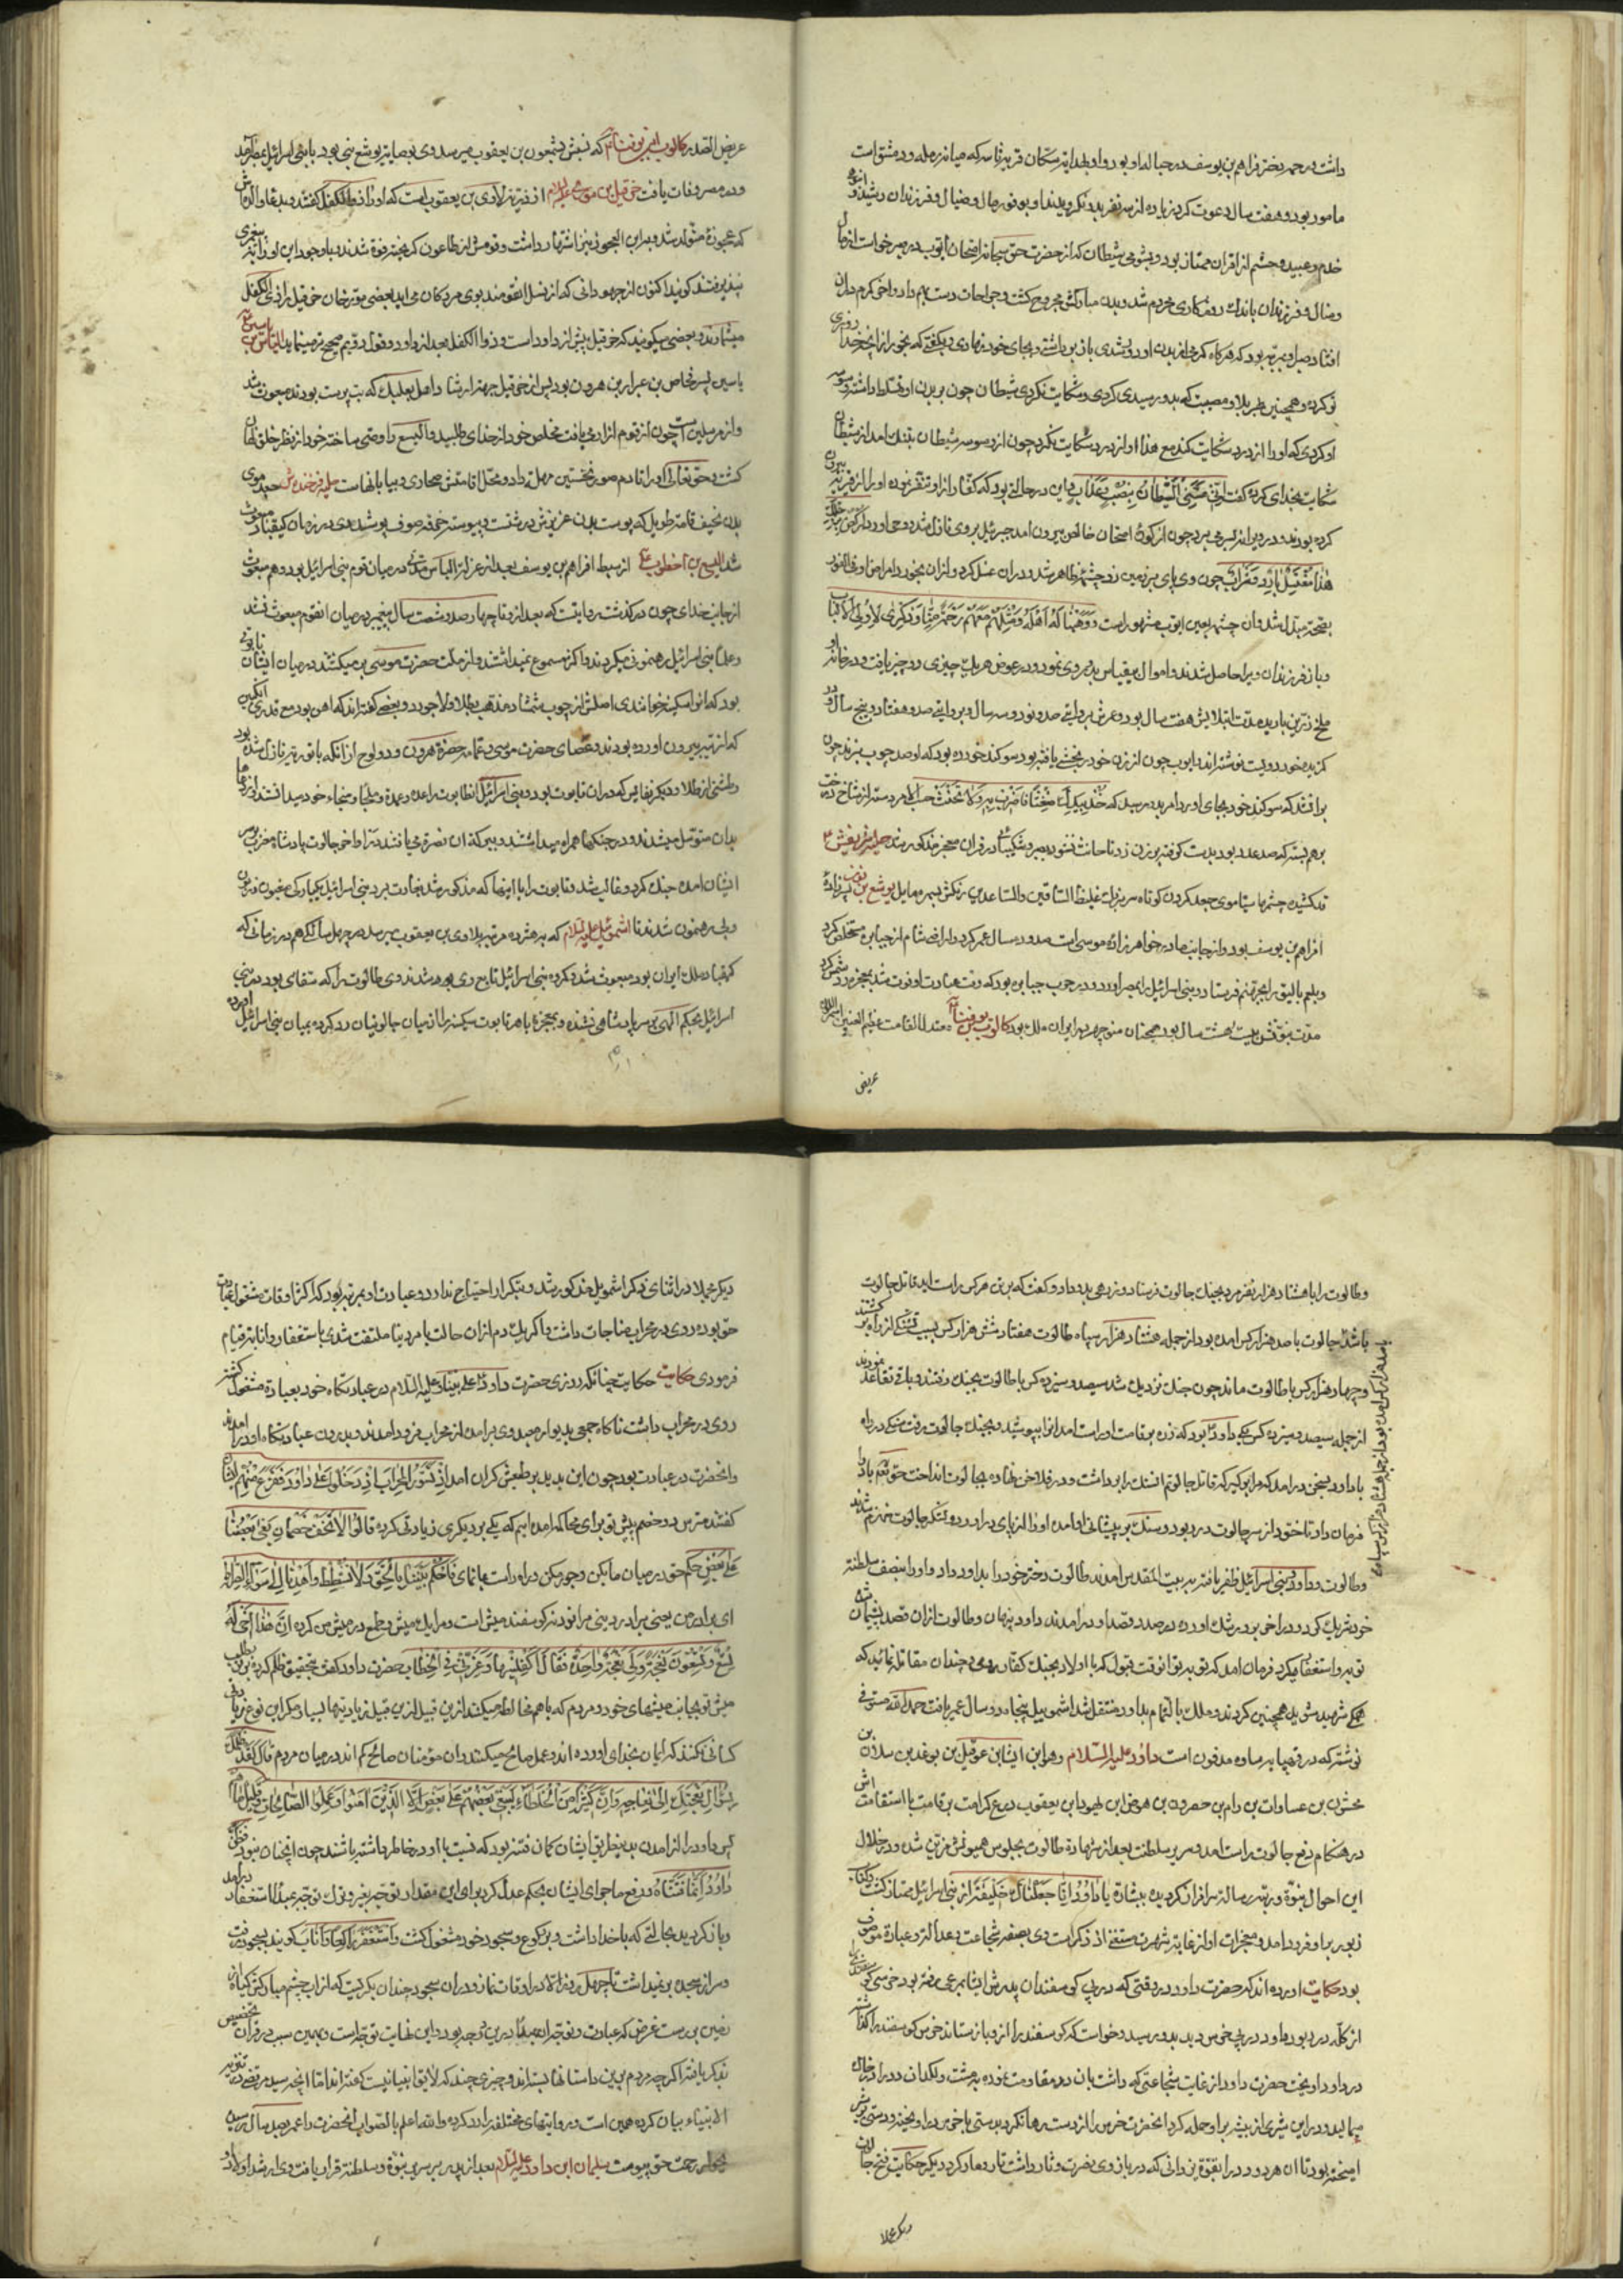 داشت در حمر دختر فراهم بن یوسف در حباله او بود و او بهدایت سکان قریه که میانه رمله و دمشق است
مامور بود و هفت سال دعوت کرد زیاده از سه نفر بدو نگرویدند او بوفور مال و ضیاع و فرزندان رشید و انبوه
خدم و عبید و حشم از اقران ممتاز بود و شیطان که از حضرت حق سبحانه امتحان ایوب بر صبر خواست از مال
و منال و فرزندان باندک روزکاری محروم شد و بدن مبارکش مجروح کشت و جراحات دست بهم داد و کرم در آن
افتاد صبر او بمرتبه بود که هرکاه کرمی از بدن او دور شدی باز بجای خود نهادی و گفتی که بخور از آنچه خدا روزی
تو کرده و همچنین هر بلا و مصیبت که بدو رسیدی کردی و شکایت نکردی شیطان چون بر بدن او تسلط داشت وسوسه
او کردی که او را از درد شکایت کند مع هذا او از درد شکایت نکرد چون از وسوسه شیطان بتنک آمد از شیطان
شکایت بخدای کرده گفت انی مسنی الشیطان بنصب و عذاب و این در حالتی بود که کفار از او تنفر نموده او را از قریه بیرون
کرده بودند و در ویرانه بسر می برد چون از کوره امتحان خالص بیرون آمد جبرئیل بر وی نازل شد و وحی آورد که ارکض برجلک
هذا مغتسل بارد و شراب چون وی پای بر زمین زد چشمه ظاهر شد و در آن غسل کرد و از آن بخورد امراض او فی الفور
بصحت مبدل شد و آن چشمه بعین ایوب مشهور است و وهبنا له اهله و مثلهم معهم رحمة منا و ذکری لاولی الالباب
و باز فرزندان ویرا حاصل شدند و اموال بیقیاس بدو روی نمود و در عوض هر یک چیزی دو چیز یافت و در خانه او
ملخ زرین بارید مدت ابتلایش هفت سال بود و عمرش بروایتی صد و نود و سه سال و بروایتی صد و هفتاد و پنج سال و در
نوشته اند ایوب چون از زن خود رنجشی یافته بود سوکند خورده بود که او صد چوب بزند چون
سوکند خود بجای آورد امر بدو رسید که خذ بیدک ضغثا فاضرب به و لا تحنث حسب الامر دسته از شاخ درخت
برهم بسته که صد عدد بود بدست کوفته بر زن زد تا حانث نشود صبر و شکیبائی در قرآن مذکور
قد کشیده چشم سیاه موی جعد کردن کوتاه سر بزرک غلیظ الساقین و الساعدین رنکش بسمره مایل یوشع بن نون
افراهم بن یوسف بود و از جانب مادر خواهرزاده موسی است صد و ده سال عمر کرد و اراضی شام از جبابره مستخلص کرد
و بلعم را بجهنم فرستاد و بنی اسرائیل را بمصر آورد و در حرب جبابره بود که وقت عبادت او فوت شد بمعجزه رد شمس کرد
مدت نبوتش بیست و هشت سال بود همچنان منوچهر در ایران ملک بود کالوب بن یوفنا معتدل القامت عظیم العینین
عریض
عریض الصدر کالوب بن یوفنا که نسبش بشمعون بن یعقوب میرسد وی بوصایت یوشع نبی بود با بنی اسرائیل بمصر آمد
و در مصر وفات یافت حزقیل بن موسی علیه السلام از ذریه لاوی بن یعقوب است که او را ذو الکفل گفتند و بدعا والدینش
که عجوزه متولد شد و بدین العجوز نیز اشتهار داشت و قومش از طاعون که بیکبار فوت شدند با وجود این او را به پیغمبری
نپذیرفتند گویند اکنون از جهودانی که از نسل آن قومند بوی مردکان می آید بعضی مورخان حزقیل را ذی الکفل
میشمارند و بعضی میکویند که حزقیل پیش از داود است و ذو الکفل بعد از داود و قول دویم صحیح تر مینماید الیاس بن
یاسین پسر فنحاص بن عیزار بن هرون بود پس از حزقیل جهت ارشاد اهل بعلبک که بت پرست بودند مبعوث شد
و از مرسلین است چون از قوم آزار می یافت مخلص خود از خدای طلبید و الیسع را وصی ساخته خود از نظر خلق نهان
کشت و حق تعالی او را تا دم صور نخستین مهلت داد و محل اقامتش صحاری و بیابانها است حلیه فرخنده ش
بدن نحیف قامت طویل که پوست بدن عزیزش درشت و پیوسته خرقه صوف پوشیدی در زمان کیقباد مبعوث
شد الیسع بن اخطوب از سبط افراهم بن یوسف بعد از عزلت الیاس مدتی در میان قوم بنی اسرائیل بود و هم مبعوث
از جانب خدای چون درکذشت روایتست که بعد از وفا چهار صد و شصت سال پیغمبر در میان آن قوم مبعوث نشد
و علماء بنی اسرائیل رهنمونی میکردند و اکثر مسموع نمیداشتند و از ملت حضرت موسی میکشتند در میان ایشان تابوتی
بود که آنرا سکینه خواندندی اصلش از چوب شمشاد مذهب بطلا و لاجورد و بعضی گفته اند که آهن بود مع قدری انکبین
که از تیه بیرون آورده بودند و عصای حضرت موسی و عمامه حضرت هرون و دو لوح از آنکه با توریة نازل شده بود
و طشتی از طلا و دیکر نفایس که در آن تابوت بود و بنی اسرائیل آن تابوت را عده و عمده و ملجا و منجاء خود میدانستند و در بلاها
بدان متوسل میشدند و در جنکها همراه میداشتند و ببرکة آن نصرة می یافتند در اواخر جالوت پادشاه مغرب بر سر
ایشان آمده جنک کرد و غالب شد و تابوت را با اینها که مذکور شد بغارت برد و بنی اسرائیل بیکبارکی مغبون و زبون
و بی رهنمون شدند تا اشموئیل علیه السلام که به هژده مرتبه بلاوی بن یعقوب میرسد در چهل سالکی هم در زمانی که
کیقباد ملک ایران بود مبعوث شد و کروه بنی اسرائیل تابع وی بوده شدند وی طالوت را که سقای بود در بنی
اسرائیل بحکم الهی بر سریر پادشاهی نشنده و بمعجزه باهره تابوت سکینه را از میان جالوتیان رد کرده بمیان بنی اسرائیل آورده
وطالوت را با هشتاد هزار نفر مرد بجنک جالوت فرستاد و زرهی بدو داد و گفت که برتن هرکس راست آید قاتل جالوت
باشد جالوت با صد هزار کس آمده بود از جمله هشتاد هزار سپاه طالوت هفتاد شش هزار کس بسبب تشنکی از راه برکشتند
و چهار هزار کس با طالوت ماند چون جنک نزدیک شد سیصد و سیزده کس با طالوت بجنک رفتند و باقی تقاعد نمودند
از جمله سیصد و سیزده کس یکی داود بود که زره بر قامت او راست آمد آنرا بپوشید و بجنک جالوت رفت سنکی در راه
با داود بسخن درآمد که مرا بر گیر که قاتل جالوتم آن سنک را برداشت و در فلاخن نهاده بجالوت انداخت حق تعالی باد را
فرمان داد تا خود از سر جالوت در ربود و سنک بر پیشانی او آمده او را از پای درآورد و لشکر جالوت منهزم شدند
وطالوت و داود و بنی اسرائیل ظفر یافته به بیت المقدس آمدند طالوت دختر خود را بداود داد و او را بنصف سلطنة
خود شریک کرد و در آخر بدو رشک آورده در صدد قصد او درآمد داود پنهان و طالوت از آن قصد پشیمان شده
توبه و استغفار میکرد فرمان آمد که توبه تو آنوقت قبول که با اولاد بجنک کفار روی و چندان مقاتله نمائید که
همکی شهید شوید همچنین کردند و ملک بالتمام بداود منتقل شد اشموییل پنجاه و دو سال عمر یافت حمد الله مستوفی
نوشته که در قصبه ساوه مدفون است داود علیه السلام و هو ابن ایشا بن عوفیل بن بوعد بن سلازن بن
نحشون بن عساوات بن رام بن حصرون بن ابن یهودا بن یعقوب کرامت بن قامت با استقامت اش
در هنکام دفع جالوت راست آمد و سریر سلطنت بعد از شهادة طالوت بجلوس همیونش مزین شد و در خلال
این احوال بنبوة و رتبه رسالة سرافراز کردید ببشارة یا داود انا جعلناک خلیفة از بنی اسرائیل ممتاز گشت و کتاب
زبور برو فرود آمد و معجزات او از غایت شهرت مستغنی از ذکر است وی بصفت شجاعت و عدالت و عبادة موصوف
بود حکایت آورده اند که حضرت داود در وقتی که در پی گوسفندان پدرش ایشا بچرا رفته بود خرسی گوسفندی
از کله در ربود داود در پی خرس دوید بدو رسید و خواست که گوسفند را از وی باز ستاند خرس گوسفند را گذاشته
در داود آویخت حضرت داود از غایت شجاعتی که داشت با آن در مقاومت نموده بمشت و لکد آن دد را در خاک
میمالید در این شیری از بیشه بر او حمله کرد آنحضرت خرس را از دست رها نکرد بدستی با خرس درآویخته و دستی بر شیر
آمیخته بود تا آن هر دو دد را بقوة یزدانی که در بازوی نصرت وثار داشت تار و مار کرد دیکر حکایت فتح جالوت
دیکر مجملا
دیکر مجملا در اثنای ذکر اشمویل مذکور شد و بتکرار احتیاج ندارد و عبادت او بمرتبه بود که اکثر اوقات مشغول عبادت
حق بوده روی در محراب مناجات داشت و اگر یک دم از آن حالت بامر دنیا ملتفت شدی باستغفار و انابت قیام
فرمودی حکایت حکایت چنانکه روزی حضرت داود علی نبینا و علیه السلام در عبادتکاه خود بعبادة مشغول کشته
روی در محراب داشت ناکاه جمعی بدیوار معبد وی برآمده از محراب فرود آمدند و بدرون عبادتکاه او در آمدند
و آنحضرت در عبادت بود چون این بدید بر طبعش کران آمد اذ تسوروا المحراب اذ دخلوا علی داود ففزع منهم
گفتند مترس دو خصم پیش تو برای محاکمه آمده ایم که یکی بر دیکری زیادتی کرده قالوا لا تخف خصمان بغی بعضنا
علی بعض حکم حق در میان ما بکن و جور مکن و راه راست بما نمای فاحکم بیننا بالحق و لا تشطط و اهدنا الی سواء الصراط
ای برادر من یعنی برادر دینی مرا نود و نه گوسفند میش است و مرا یک میش و طمع در میش من کرده ان هذا اخی له
تسع و تسعون نعجة و لی نعجة واحدة فقال اکفلنیها و عزنی فی الخطاب حضرت داود گفت بتحقیق ظلم کرد بر تو بطلب
میش تو بجانب میشهای خود و مردم که باهم مخالطه میکنند از این قبیل زیادتیها بسیار مکر این نوع زیادتی
کسانی نکنند که ایمان بخدای آورده اند و عمل صالح میکنند و آن مؤمنان صالح کم اند در میان مردم قال لقد ظلمک
بسؤال نعجتک الی نعاجه و ان کثیرا من الخلطاء لیبغی بعضهم علی بعض الا الذین آمنوا و عملوا الصالحات و قلیل ما هم
پس داود را از آمدن بدینطریق ایشان کمان فتنه بود که نسبت باو در خاطر داشته باشند چون آنچنان نبود و ظن
داود انما فتناه و رفع ماجرای ایشان بحکم عدل کرد برای این مقدار توجه بغیر و ترک توجه بمبدا استغفار
و باز کردید بحالتی که با خدا داشت و برکوع و سجود خود مشغول گشت و استغفر ربه راکعا و اناب گویند بسجود رفت
و سر از سجده بر نمیداشت تا چهل روز الا در اوقات نماز و در آن سجود چندان بگریست که از آب چشم مبارکش گیاه از
زمین برست غرض که عبادت و توجه آن بدین درجه بود و این نهایت توجه است و بهمین سبب در قرآن تخصیص
بذکر یافته اگرچه مردم بر این داستانها بسته اند و چیزی چند که لایق انبیا نیست گفته اند اما آنچه سید مرتضی در تنزیه
الانبیاء بیان کرده همین است و روایتهای مختلفه را رد کرده والله اعلم بالصواب آنحضرت را عمر بصد سال رسیده
بجوار رحمت حق پیوست سلیمان ابن داود علیه السلام بعد از پدر بر سریر نبوة و سلطنة قرار یافت وی ارشد اولاد